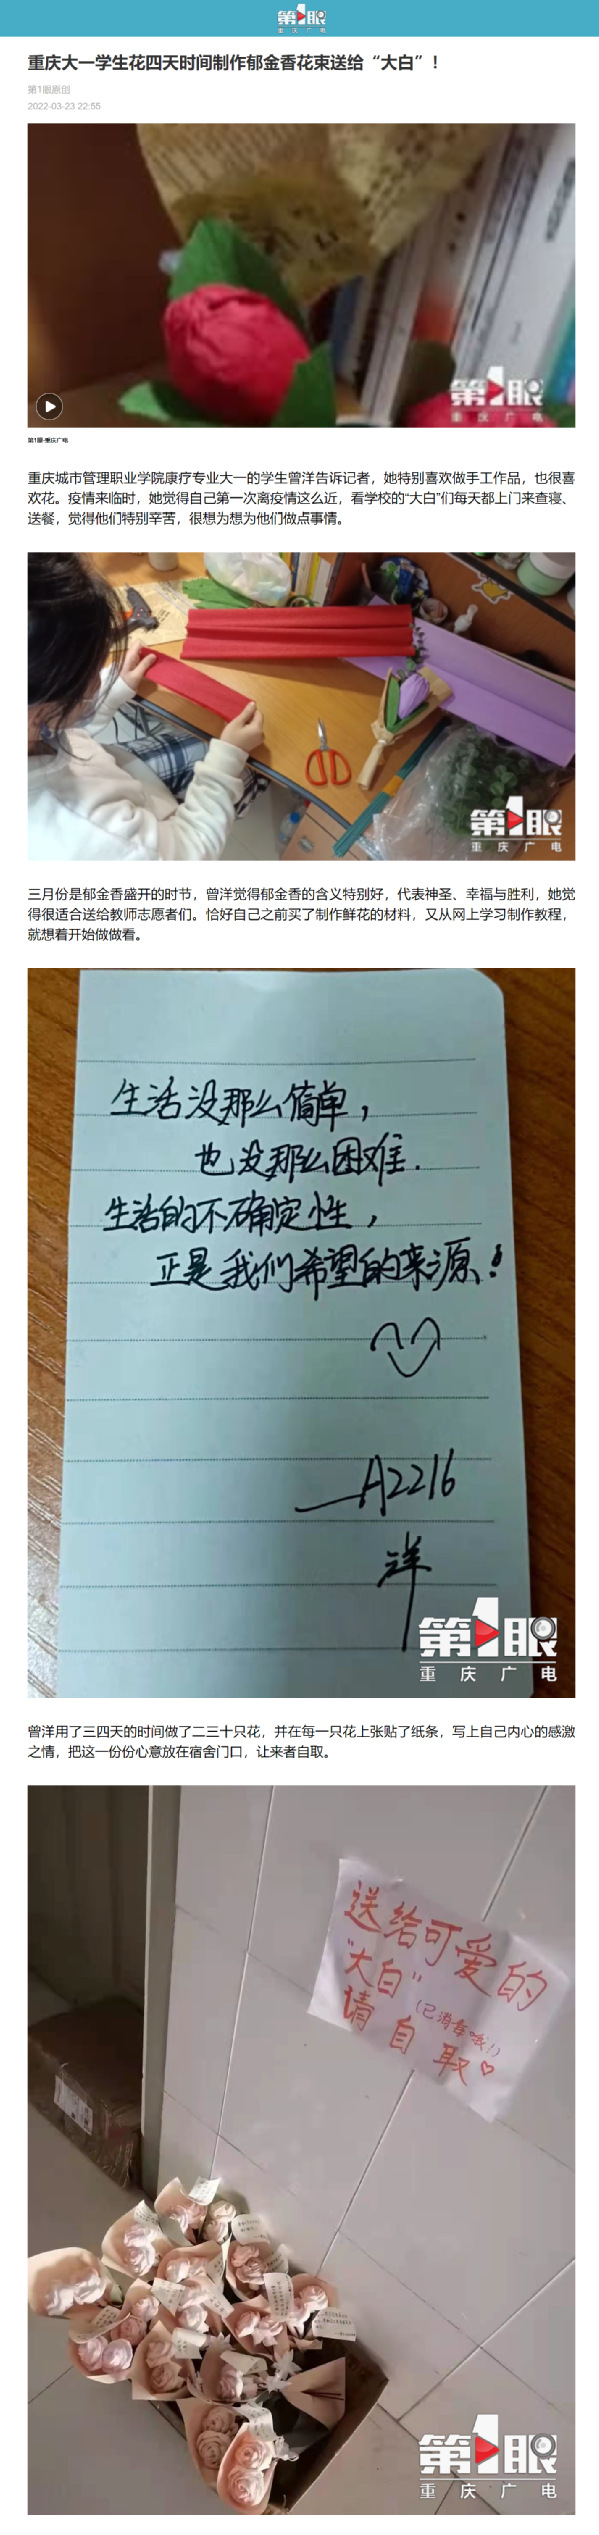 第1眼
重庆广电
重庆大一学生花四天时间制作郁金香花束送给“大白”！
第1眼原创
2022-03-23 22:55
第1眼
重庆广电
第1眼-重庆广电
重庆城市管理职业学院康疗专业大一的学生曾洋告诉记者，她特别喜欢做手工作品，也很喜
欢花。疫情来临时，她觉得自己第一次离疫情这么近，看学校的“大白”们每天都上门来查寝、
送餐，觉得他们特别辛苦，很想为想为他们做点事情。
第1眼
重庆广电
三月份是郁金香盛开的时节，曾洋觉得郁金香的含义特别好，代表神圣、幸福与胜利，她觉
得很适合送给教师志愿者们。恰好自己之前买了制作鲜花的材料，又从网上学习制作教程，
就想着开始做做看。
生活没那么简单，
也没那么困难.
生活的不确定性，
正是我们希望的来源！
A2216
洋
第1眼
重庆广电
曾洋用了三四天的时间做了二三十只花，并在每一只花上张贴了纸条，写上自己内心的感激
之情，把这一份份心意放在宿舍门口，让来者自取。
送给可爱的
“大白”
(已消毒哦!)
请自取♡
第1眼
重庆广电